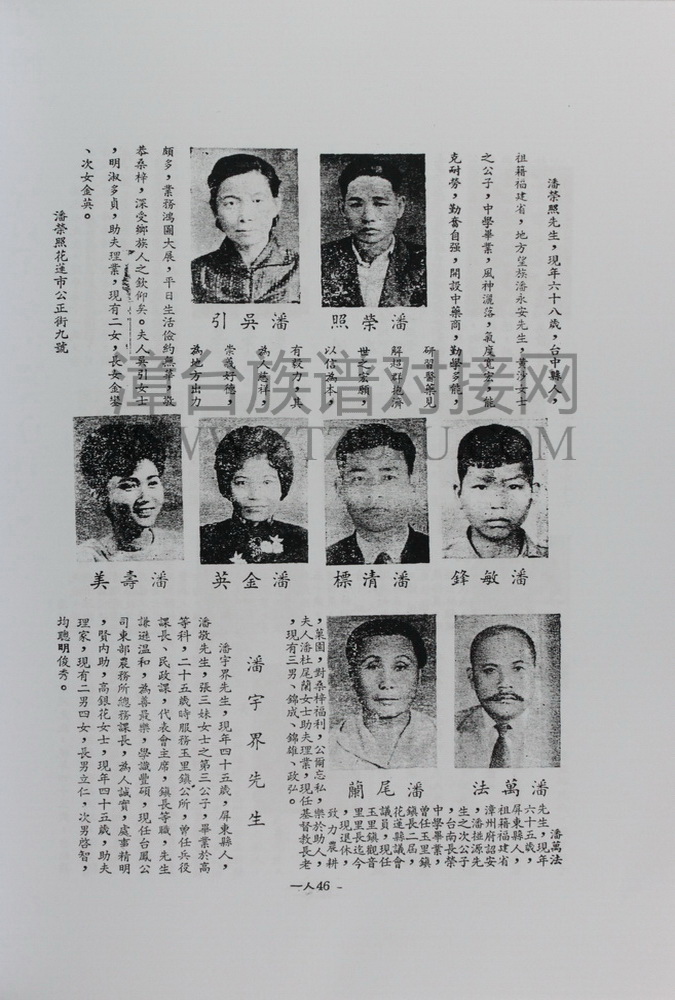 潘榮照先生，現年六十八歲，台中縣人，
祖籍福建省，地方望族潘永安先生，黃沙女士
之公子，中學畢業，風神灑落，氣度寬宏，能
克耐勞，勤奮自强，開設中藥商，勤學多能，
研習醫藥見
解超群抱濟
世之宏願，
以信為本，
有毅力，其
為人慈祥，
崇義好德，
為地方出力
頗多，業務鴻圖大展，平日生活儉約無華，敬
恭桑梓，深受鄉族人之欽仰矣。夫人吳引女士
，明淑多貞，助夫理業，現有二女，長女金鑾
、次女金英。
潘榮照花蓮市公正街九號
潘榮照
潘吳引
潘敏鋒
潘清標
潘金英
潘壽美
潘萬法
潘尾蘭
潘萬法
先生，現年
六十五歲，
屏東縣人，
祖籍福建省
漳州府詔安
，潘㨗源先
生之次公子
，台南長榮
中學畢業，
曾任玉里鎮
鎮長二屆，
花蓮縣議會
議員，現任
玉里鎮觀音
里里長迄今
，現退休，
致力農耕
，菓園，對桑梓福利，公爾忘私，樂於助人，
夫人潘杜尾蘭女士助夫理業，現任基督教長老
，現有三男、錦成、錦雄、政弘。
潘宇界先生
潘宇界先生，現年四十五歲，屏東縣人，
潘敬先生，張三妹女士之第三公子，畢業於高
等科，二十五歲時服務玉里鎮公所，曾任兵役
課長、民政課，代表會主席，鎮長等職，先生
謙遜溫和，為善最樂，學識豐碩，現任台鳳公
司東部農務所總務課長，為人誠實，處事精明
，賢內助，高銀花女士，現年四十五歲，助夫
理家，現有二男四女，長男立仁，次男啓智，
均聰明俊秀。
一人46 -
漳台族谱对接网
WWW.ZTZUPU.COM